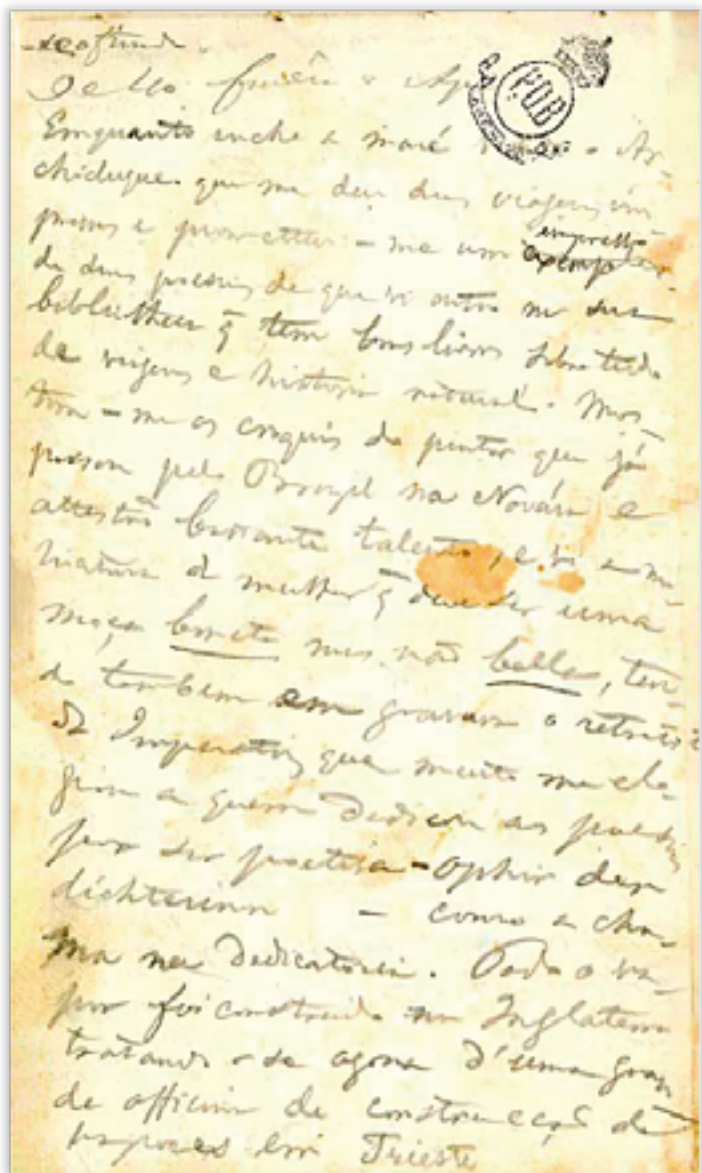 Emquanto enche a maré o Ar-
chiduque que me deu duas viagens im-
pressas e prometteu-me um impresso
de duas poesias de que vi outro na sua
bibliotheca q̃ tem bons livros sobretudo
de viagens e historia natural. Mos-
trou-me os croquis do pintor que já
passou pelo Brazil na Novára e
attestão bastante talento, e vi a mi-
niatura da mulher q̃ deve ser uma
moça bonita mas não bella, ten-
do tambem em gravura o retrato
da Imperatriz que muito me elo-
giou a quem dedicou as poesias
por ser poetisa - Ophir der
dichterinn - como a cha-
ma na dedicatoria. Todo o va-
por foi construido na Inglaterra
tratando-se agora d'uma gran-
de officina de construcção de
vapores em Trieste
POB